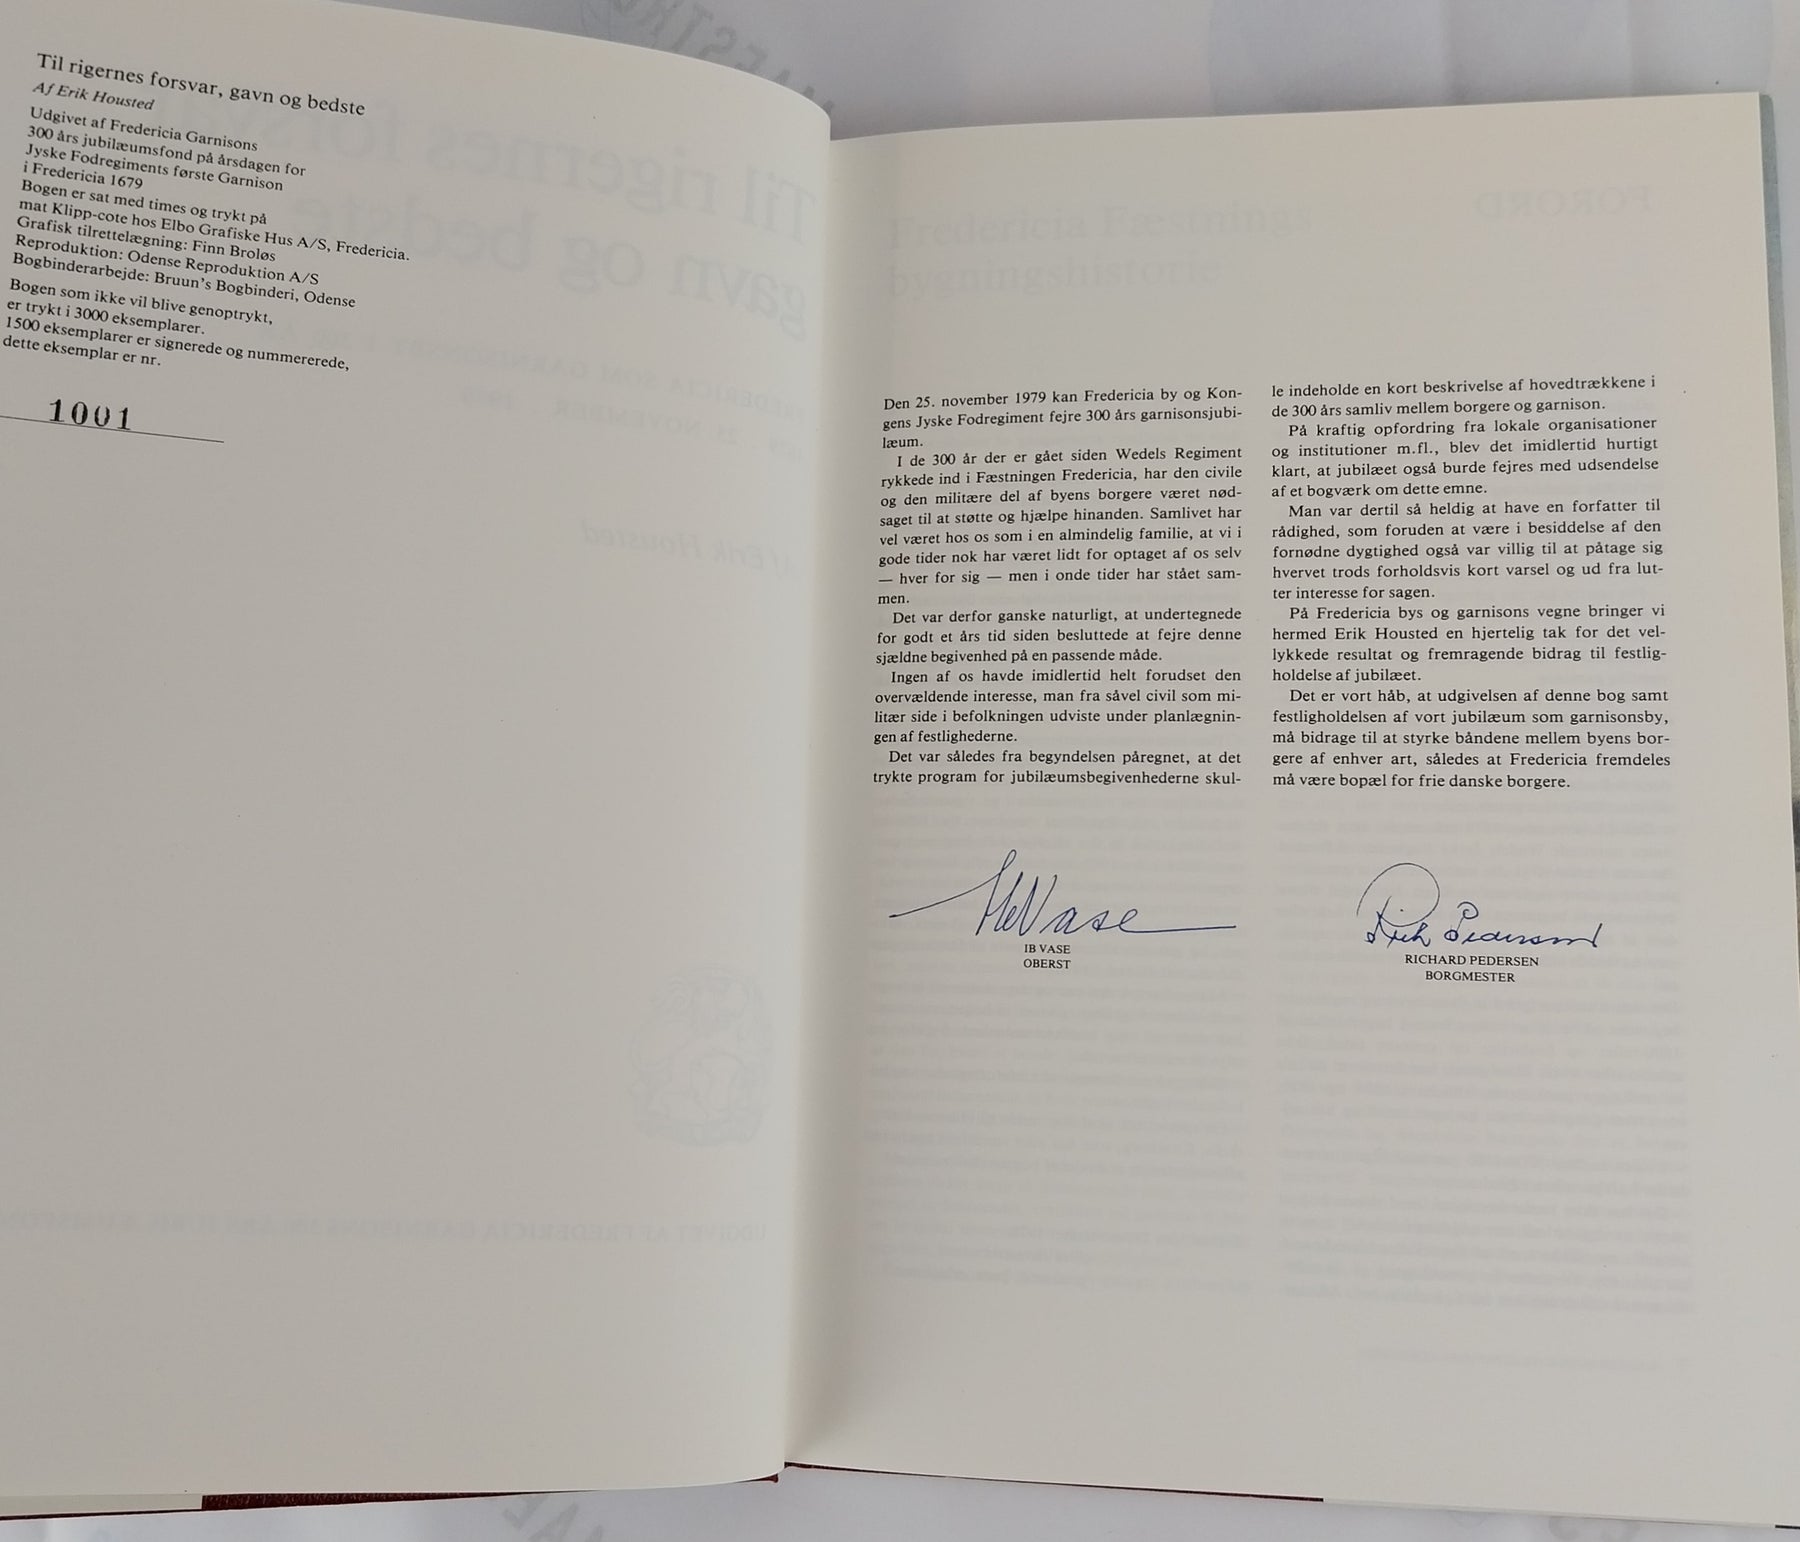 Til rigernes forsvar, gavn og bedste
Af Erik Housted
Udgivet af Fredericia Garnisons
300 års jubilæumsfond på årsdagen for
Jyske Fodregiments første Garnison
i Fredericia 1679
Bogen er sat med times og trykt på
mat Klipp-cote hos Elbo Grafiske Hus A/S, Fredericia.
Grafisk tilrettelægning: Finn Broløs
Reproduktion: Odense Reproduktion A/S
Bogbinderarbejde: Bruun's Bogbinderi, Odense
Bogen som ikke vil blive genoptrykt,
er trykt i 3000 eksemplarer.
1500 eksemplarer er signerede og nummererede,
dette eksemplar er nr.
1001
FORORD
Fredericia Fæstnings
bygningshistorie
Den 25. november 1979 kan Fredericia by og Kon-
gens Jyske Fodregiment fejre 300 års garnisonsjubi-
læum.
I de 300 år der er gået siden Wedels Regiment
rykkede ind i Fæstningen Fredericia, har den civile
og den militære del af byens borgere været nød-
saget til at støtte og hjælpe hinanden. Samlivet har
vel været hos os som i en almindelig familie, at vi i
gode tider nok har været lidt for optaget af os selv
— hver for sig — men i onde tider har stået sam-
men.
Det var derfor ganske naturligt, at undertegnede
for godt et års tid siden besluttede at fejre denne
sjældne begivenhed på en passende måde.
Ingen af os havde imidlertid helt forudset den
overvældende interesse, man fra såvel civil som mi-
litær side i befolkningen udviste under planlægnin-
gen af festlighederne.
Det var således fra begyndelsen påregnet, at det
trykte program for jubilæumsbegivenhederne skul-
le indeholde en kort beskrivelse af hovedtrækkene i
de 300 års samliv mellem borgere og garnison.
På kraftig opfordring fra lokale organisationer
og institutioner m.fl., blev det imidlertid hurtigt
klart, at jubilæet også burde fejres med udsendelse
af et bogværk om dette emne.
Man var dertil så heldig at have en forfatter til
rådighed, som foruden at være i besiddelse af den
fornødne dygtighed også var villig til at påtage sig
hvervet trods forholdsvis kort varsel og ud fra lut-
ter interesse for sagen.
På Fredericia bys og garnisons vegne bringer vi
hermed Erik Housted en hjertelig tak for det vel-
lykkede resultat og fremragende bidrag til festlig-
holdelse af jubilæet.
Det er vort håb, at udgivelsen af denne bog samt
festligholdelsen af vort jubilæum som garnisonsby,
må bidrage til at styrke båndene mellem byens bor-
gere af enhver art, således at Fredericia fremdeles
må være bopæl for frie danske borgere.
Ib Vase
IB VASE
OBERST
Rich Pedersen
RICHARD PEDERSEN
BORGMESTER